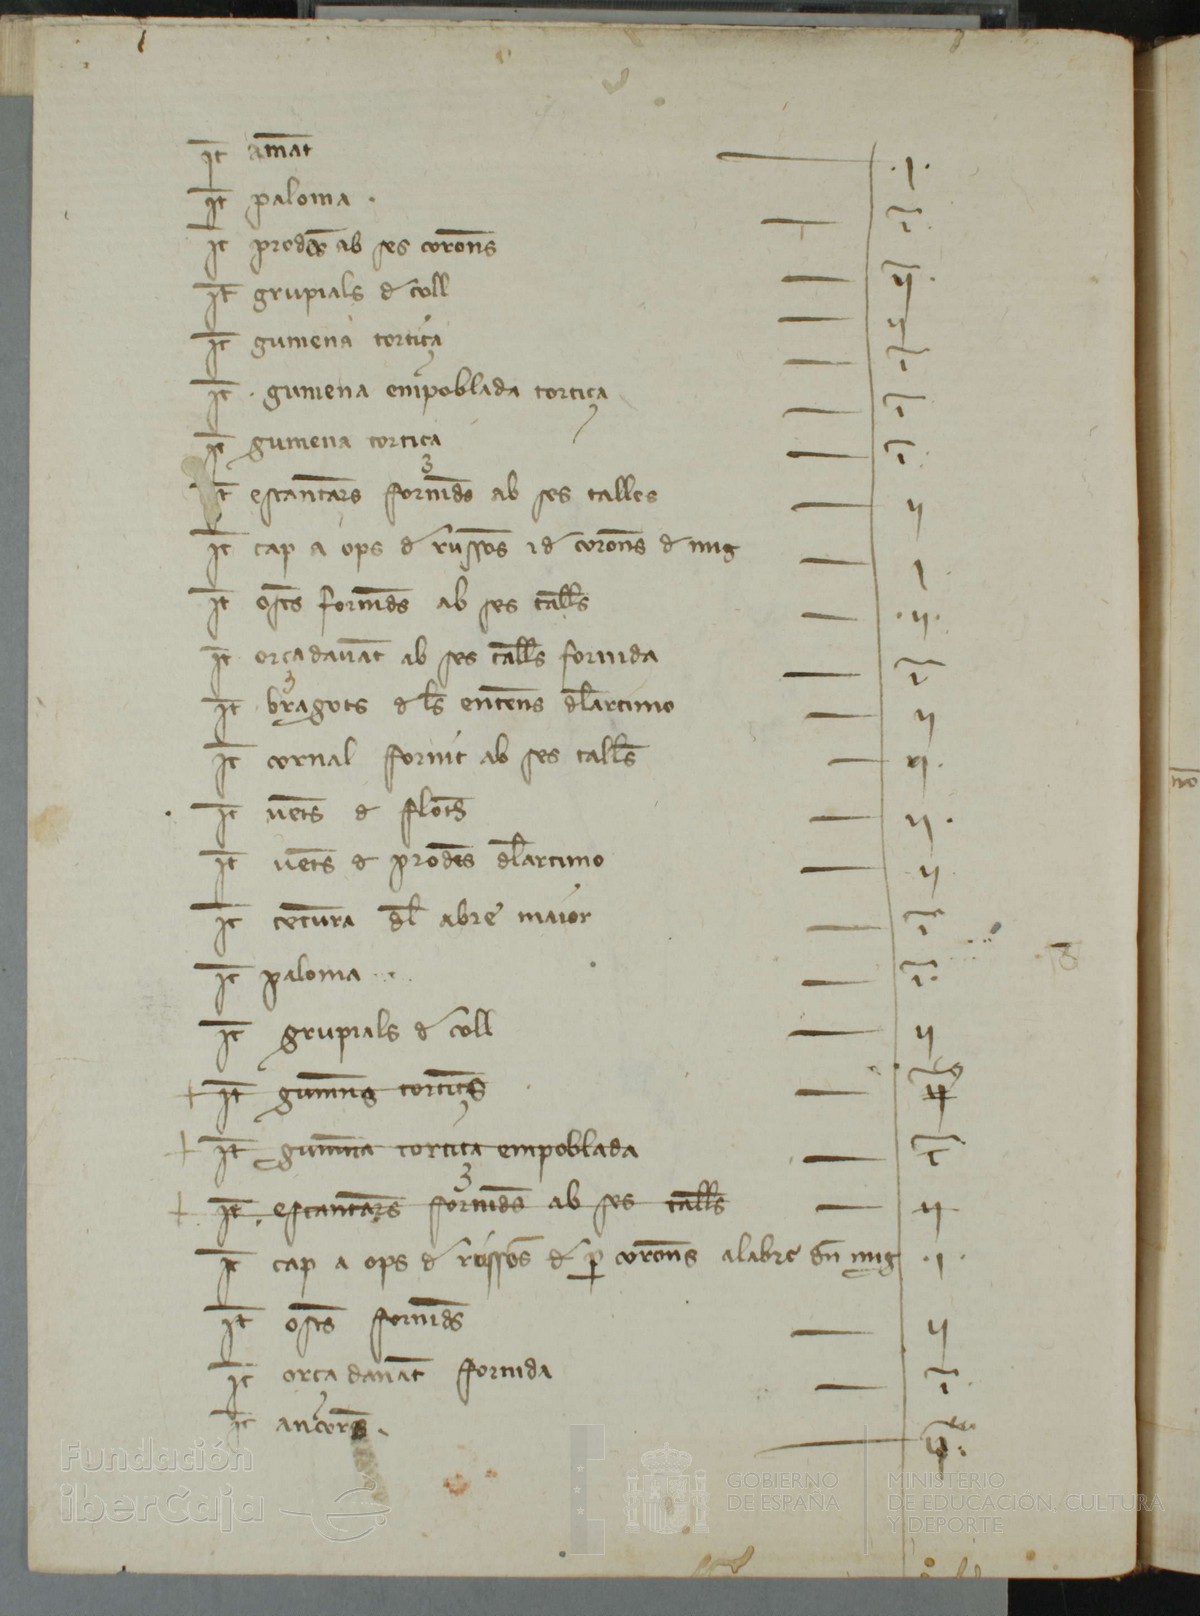 It amant .I.
It paloma . I.
It prodes ab ses corons II.
It grupials de coll II
It gumena tortiça I.
It . gumena empoblada tortiça I
It gumena tortiça I.
It escantars fornids ab ses talles II
It cap a ops de russos i de corons de mig I
It osts fornids ab ses talls .II.
It orça davant ab ses talls fornida I
It bragots de ls entens dl artimo II
It cornal fornit ab ses talls II.
It vets de flots II.
It vets de prodes dl artimo II
It tetura dl abre maior I
It paloma I.
It grupials de coll II
It gumns tortiçs
It gumna tortiça empoblada I
It escantars fornids ab ses talls II
It cap a ops de russos de per corons al abre dn mig .I.
It osts fornids II
It orça davant fornida I.
It ancors.
Fundación
iberCaja
GOBIERNO
DE ESPAÑA
MINISTERIO
DE EDUCACIÓN, CULTURA
Y DEPORTE